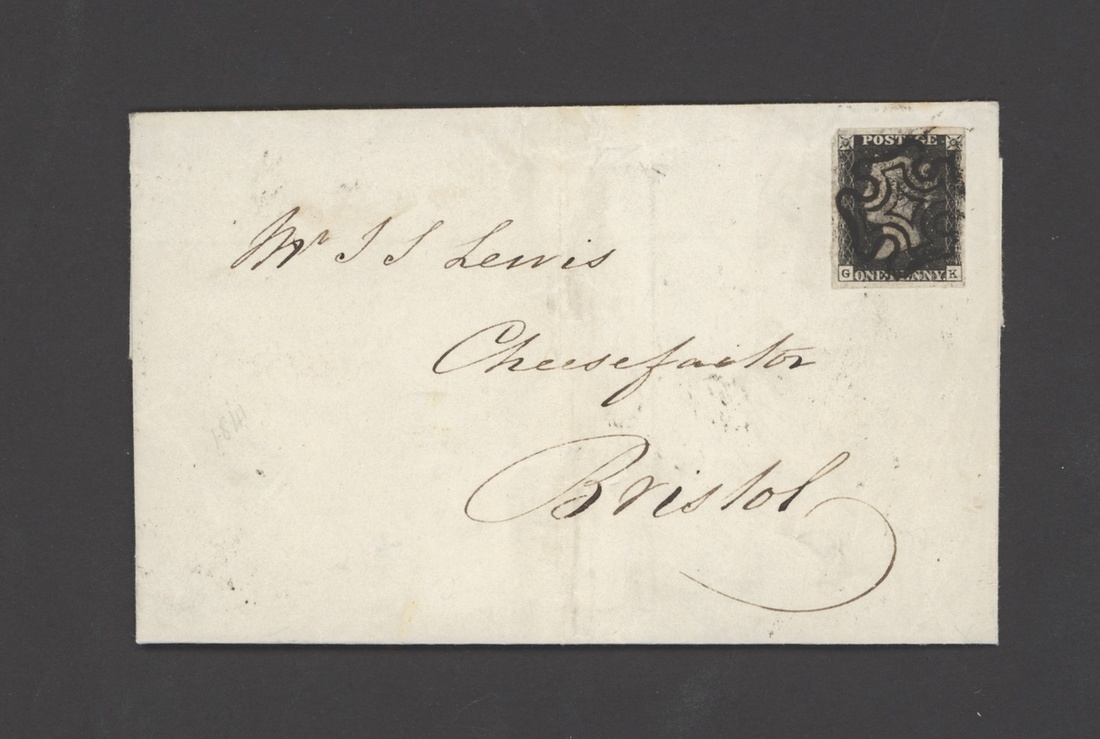 POSTAGE
G ONE PENNY K
Mr J S Lewis
Cheesefactor
Bristol